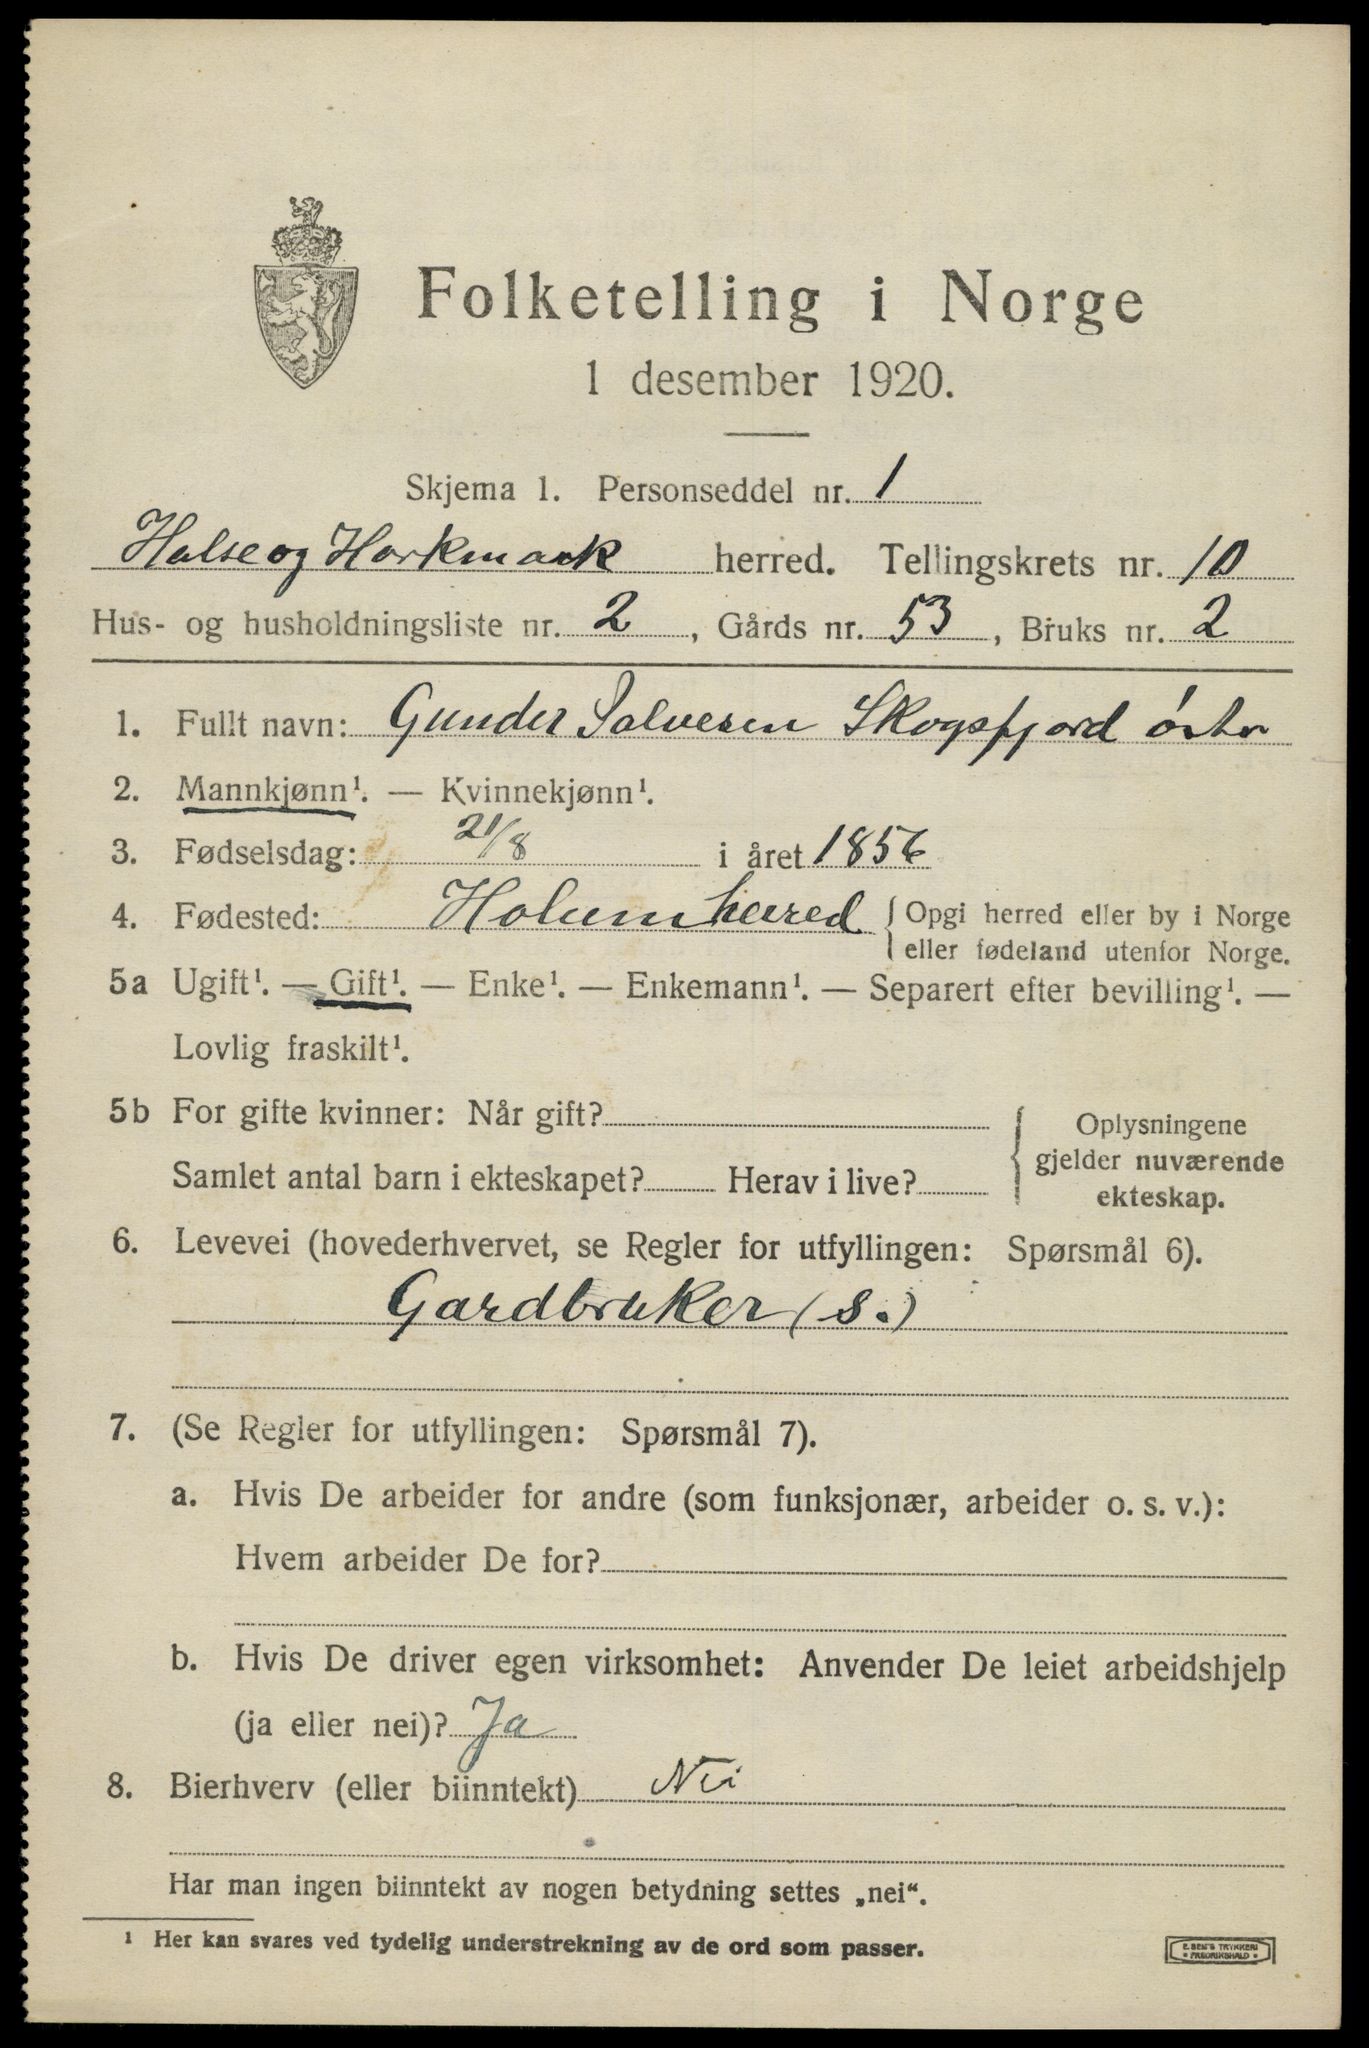 Folketelling i Norge
1 desember 1920.
Skjema 1. Personseddel nr. 1
Halse og Harkmark herred. Tellingskrets nr. 10
Hus- og husholdningsliste nr. 2, Gårds nr. 53, Bruks nr. 2
1. Fullt navn: Gunder Salvesen Skogsfjord østre
2. Mannkjønn¹. — Kvinnekjønn¹.
3. Fødselsdag: 21/8 i året 1856
4. Fødested: Holum herred { Opgi herred eller by i Norge
eller fødeland utenfor Norge.
5a Ugift¹. — Gift¹. — Enke¹. — Enkemann¹. — Separert efter bevilling¹. —
Lovlig fraskilt¹.
5b For gifte kvinner: Når gift?
Samlet antal barn i ekteskapet? Herav i live?
{ Oplysningene
gjelder nuværende
ekteskap.
6. Levevei (hovederhvervet, se Regler for utfyllingen: Spørsmål 6).
Gardbruker (s.)
7. (Se Regler for utfyllingen: Spørsmål 7).
a. Hvis De arbeider for andre (som funksjonær, arbeider o. s. v.):
Hvem arbeider De for?
b. Hvis De driver egen virksomhet: Anvender De leiet arbeidshjelp
(ja eller nei)? Ja
8. Bierhverv (eller biinntekt) Nei
Har man ingen biinntekt av nogen betydning settes „nei“.
¹ Her kan svares ved tydelig understrekning av de ord som passer.
E. SEM'S TRYKKERI
• FREDRIKSHALD •